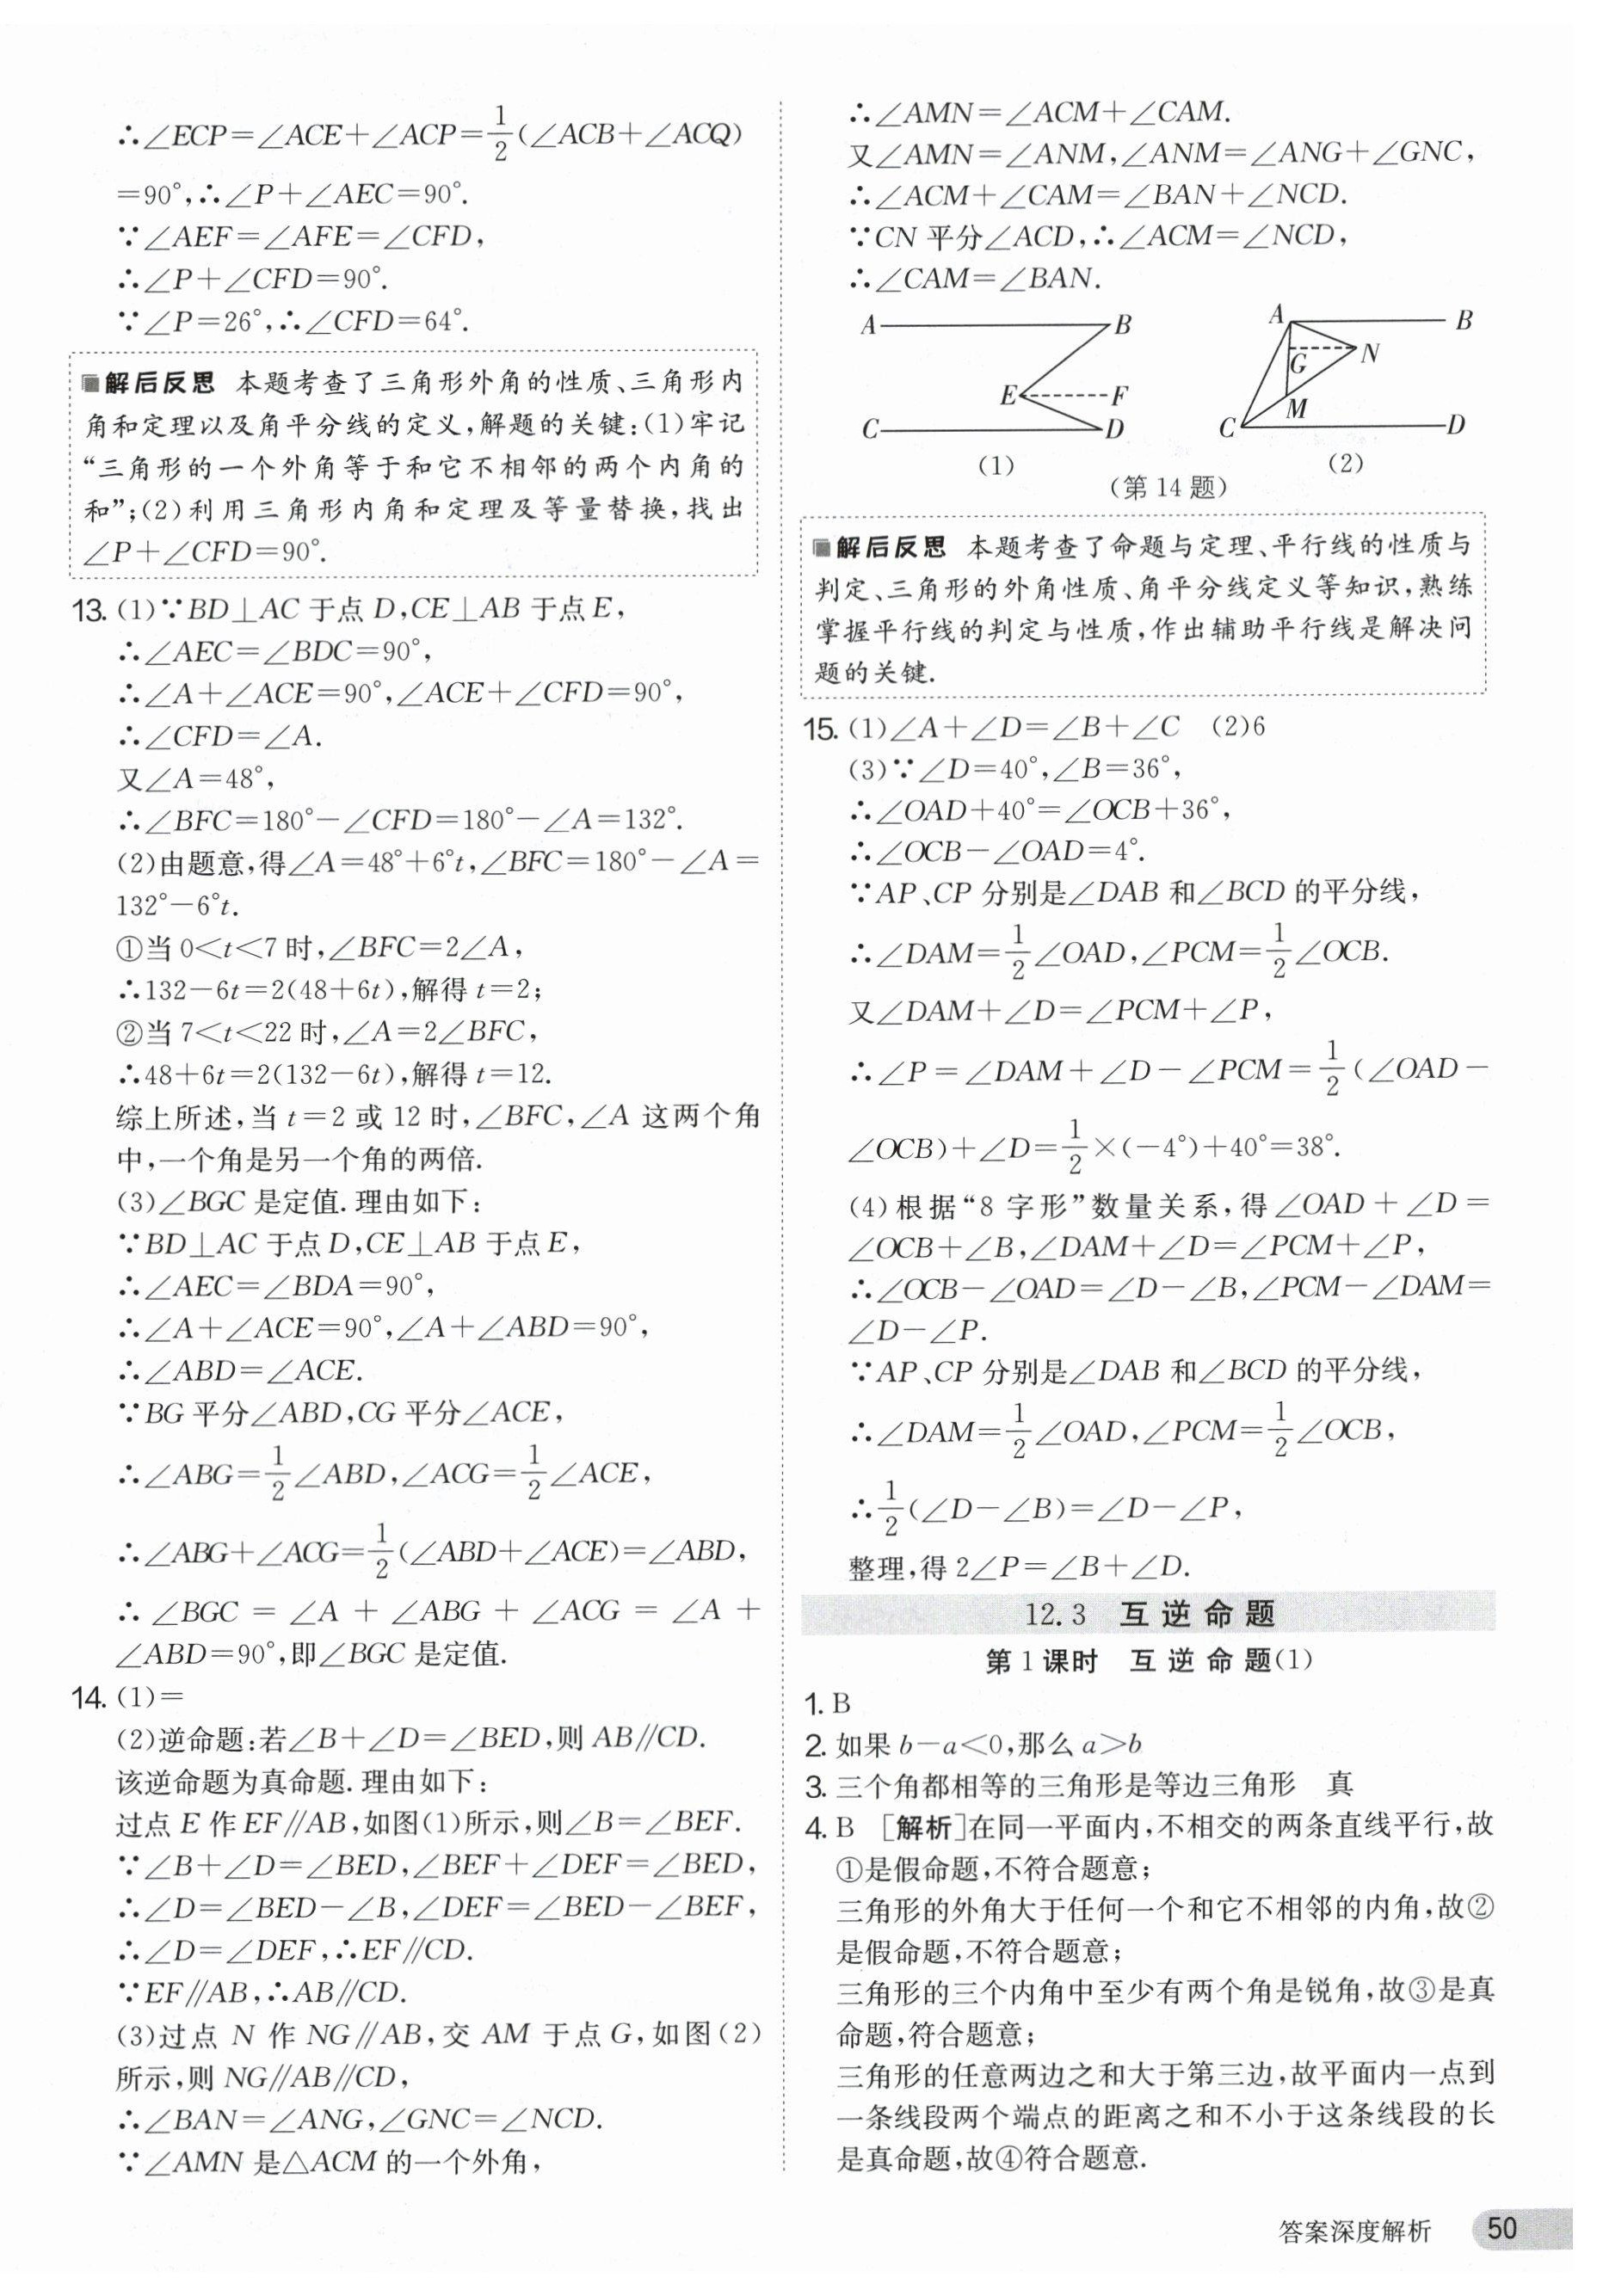 ∴∠ECP=∠ACE+∠ACP=1/2(∠ACB+∠ACQ)
=90°,∴∠P+∠AEC=90°.
∵∠AEF=∠AFE=∠CFD,
∴∠P+∠CFD=90°.
∵∠P=26°,∴∠CFD=64°.
解后反思 本题考查了三角形外角的性质、三角形内
角和定理以及角平分线的定义,解题的关键:(1)牢记
“三角形的一个外角等于和它不相邻的两个内角的
和”;(2)利用三角形内角和定理及等量替换,找出
∠P+∠CFD=90°.
13. (1)∵BD⊥AC 于点 D,CE⊥AB 于点 E,
∴∠AEC=∠BDC=90°,
∴∠A+∠ACE=90°,∠ACE+∠CFD=90°,
∴∠CFD=∠A.
又∠A=48°,
∴∠BFC=180°-∠CFD=180°-∠A=132°.
(2)由题意,得∠A=48°+6°t,∠BFC=180°-∠A=
132°-6°t.
①当 0<t<7 时,∠BFC=2∠A,
∴132-6t=2(48+6t),解得 t=2;
②当 7<t<22 时,∠A=2∠BFC,
∴48+6t=2(132-6t),解得 t=12.
综上所述,当 t=2 或 12 时,∠BFC,∠A 这两个角
中,一个角是另一个角的两倍.
(3)∠BGC 是定值. 理由如下:
∵BD⊥AC 于点 D,CE⊥AB 于点 E,
∴∠AEC=∠BDA=90°,
∴∠A+∠ACE=90°,∠A+∠ABD=90°,
∴∠ABD=∠ACE.
∵BG 平分∠ABD,CG 平分∠ACE,
∴∠ABG=1/2∠ABD,∠ACG=1/2∠ACE,
∴∠ABG+∠ACG=1/2(∠ABD+∠ACE)=∠ABD,
∴∠BGC=∠A+∠ABG+∠ACG=∠A+
∠ABD=90°,即∠BGC 是定值.
14. (1)=
(2)逆命题:若∠B+∠D=∠BED,则 AB∥CD.
该逆命题为真命题. 理由如下:
过点 E 作 EF∥AB,如图(1)所示,则∠B=∠BEF.
∵∠B+∠D=∠BED,∠BEF+∠DEF=∠BED,
∴∠D=∠BED-∠B,∠DEF=∠BED-∠BEF,
∴∠D=∠DEF,∴EF∥CD.
∵EF∥AB,∴AB∥CD.
(3)过点 N 作 NG∥AB,交 AM 于点 G,如图(2)
所示,则 NG∥AB∥CD,
∴∠BAN=∠ANG,∠GNC=∠NCD.
∵∠AMN 是△ACM 的一个外角,
∴∠AMN=∠ACM+∠CAM.
又∠AMN=∠ANM,∠ANM=∠ANG+∠GNC,
∴∠ACM+∠CAM=∠BAN+∠NCD.
∵CN 平分∠ACD,∴∠ACM=∠NCD,
∴∠CAM=∠BAN.
A B E F C D
(1)
A B G N M C D
(2)
(第 14 题)
解后反思 本题考查了命题与定理、平行线的性质与
判定、三角形的外角性质、角平分线定义等知识,熟练
掌握平行线的判定与性质,作出辅助平行线是解决问
题的关键.
15. (1)∠A+∠D=∠B+∠C (2)6
(3)∵∠D=40°,∠B=36°,
∴∠OAD+40°=∠OCB+36°,
∴∠OCB-∠OAD=4°.
∵AP、CP 分别是∠DAB 和∠BCD 的平分线,
∴∠DAM=1/2∠OAD,∠PCM=1/2∠OCB.
又∠DAM+∠D=∠PCM+∠P,
∴∠P=∠DAM+∠D-∠PCM=1/2(∠OAD-
∠OCB)+∠D=1/2×(-4°)+40°=38°.
(4)根据“8 字形”数量关系,得∠OAD+∠D=
∠OCB+∠B,∠DAM+∠D=∠PCM+∠P,
∴∠OCB-∠OAD=∠D-∠B,∠PCM-∠DAM=
∠D-∠P.
∵AP、CP 分别是∠DAB 和∠BCD 的平分线,
∴∠DAM=1/2∠OAD,∠PCM=1/2∠OCB,
∴1/2(∠D-∠B)=∠D-∠P,
整理,得 2∠P=∠B+∠D.
12.3 互逆命题
第 1 课时 互逆命题(1)
1. B
2. 如果 b-a<0,那么 a>b
3. 三个角都相等的三角形是等边三角形 真
4. B [解析]在同一平面内,不相交的两条直线平行,故
①是假命题,不符合题意;
三角形的外角大于任何一个和它不相邻的内角,故②
是假命题,不符合题意;
三角形的三个内角中至少有两个角是锐角,故③是真
命题,符合题意;
三角形的任意两边之和大于第三边,故平面内一点到
一条线段两个端点的距离之和不小于这条线段的长
是真命题,故④符合题意.
答案深度解析 50